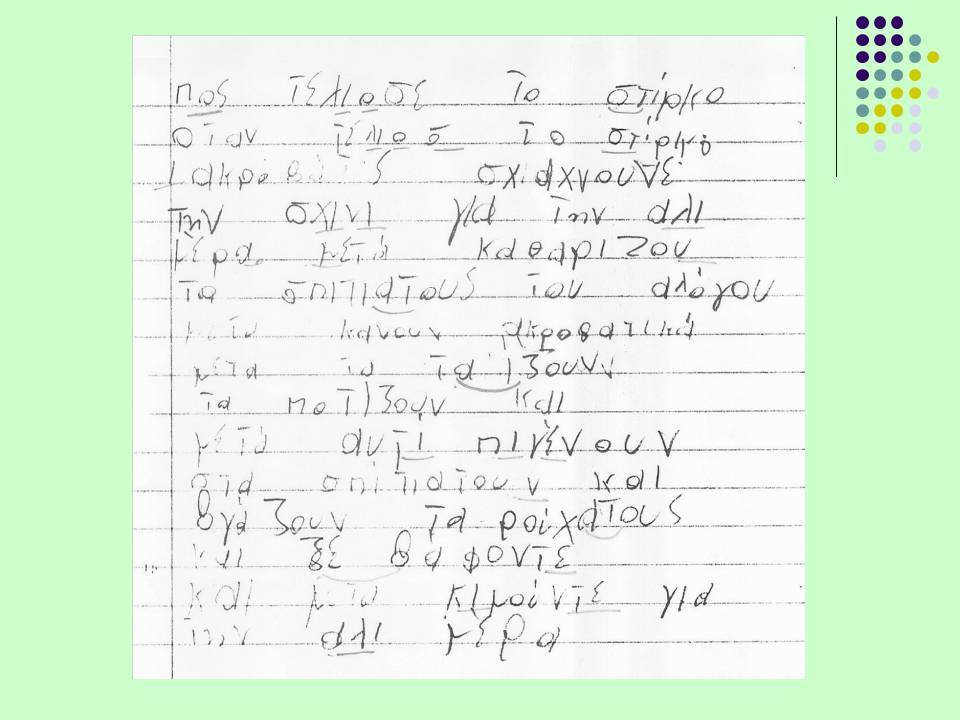 πος τελιοσε το στίρκο
οταν τέλιοσ το στίρκο
ι ακροβάτις σχιαχνουντε
την σχινι για την αλι
μέρα μετά καθαριζου
τα σπιτιατους του αλόγου
μετα κανουν ακροβατικά
μετα τα ταΐζουνν
τα ποτίζουν και
μετά αυτι πιγένουν
στα σπίτιατουν και
βγάζουν τα ροίχατους
και ξε βαφοντε
και μετα κιμούντε για
την αλι μέρα